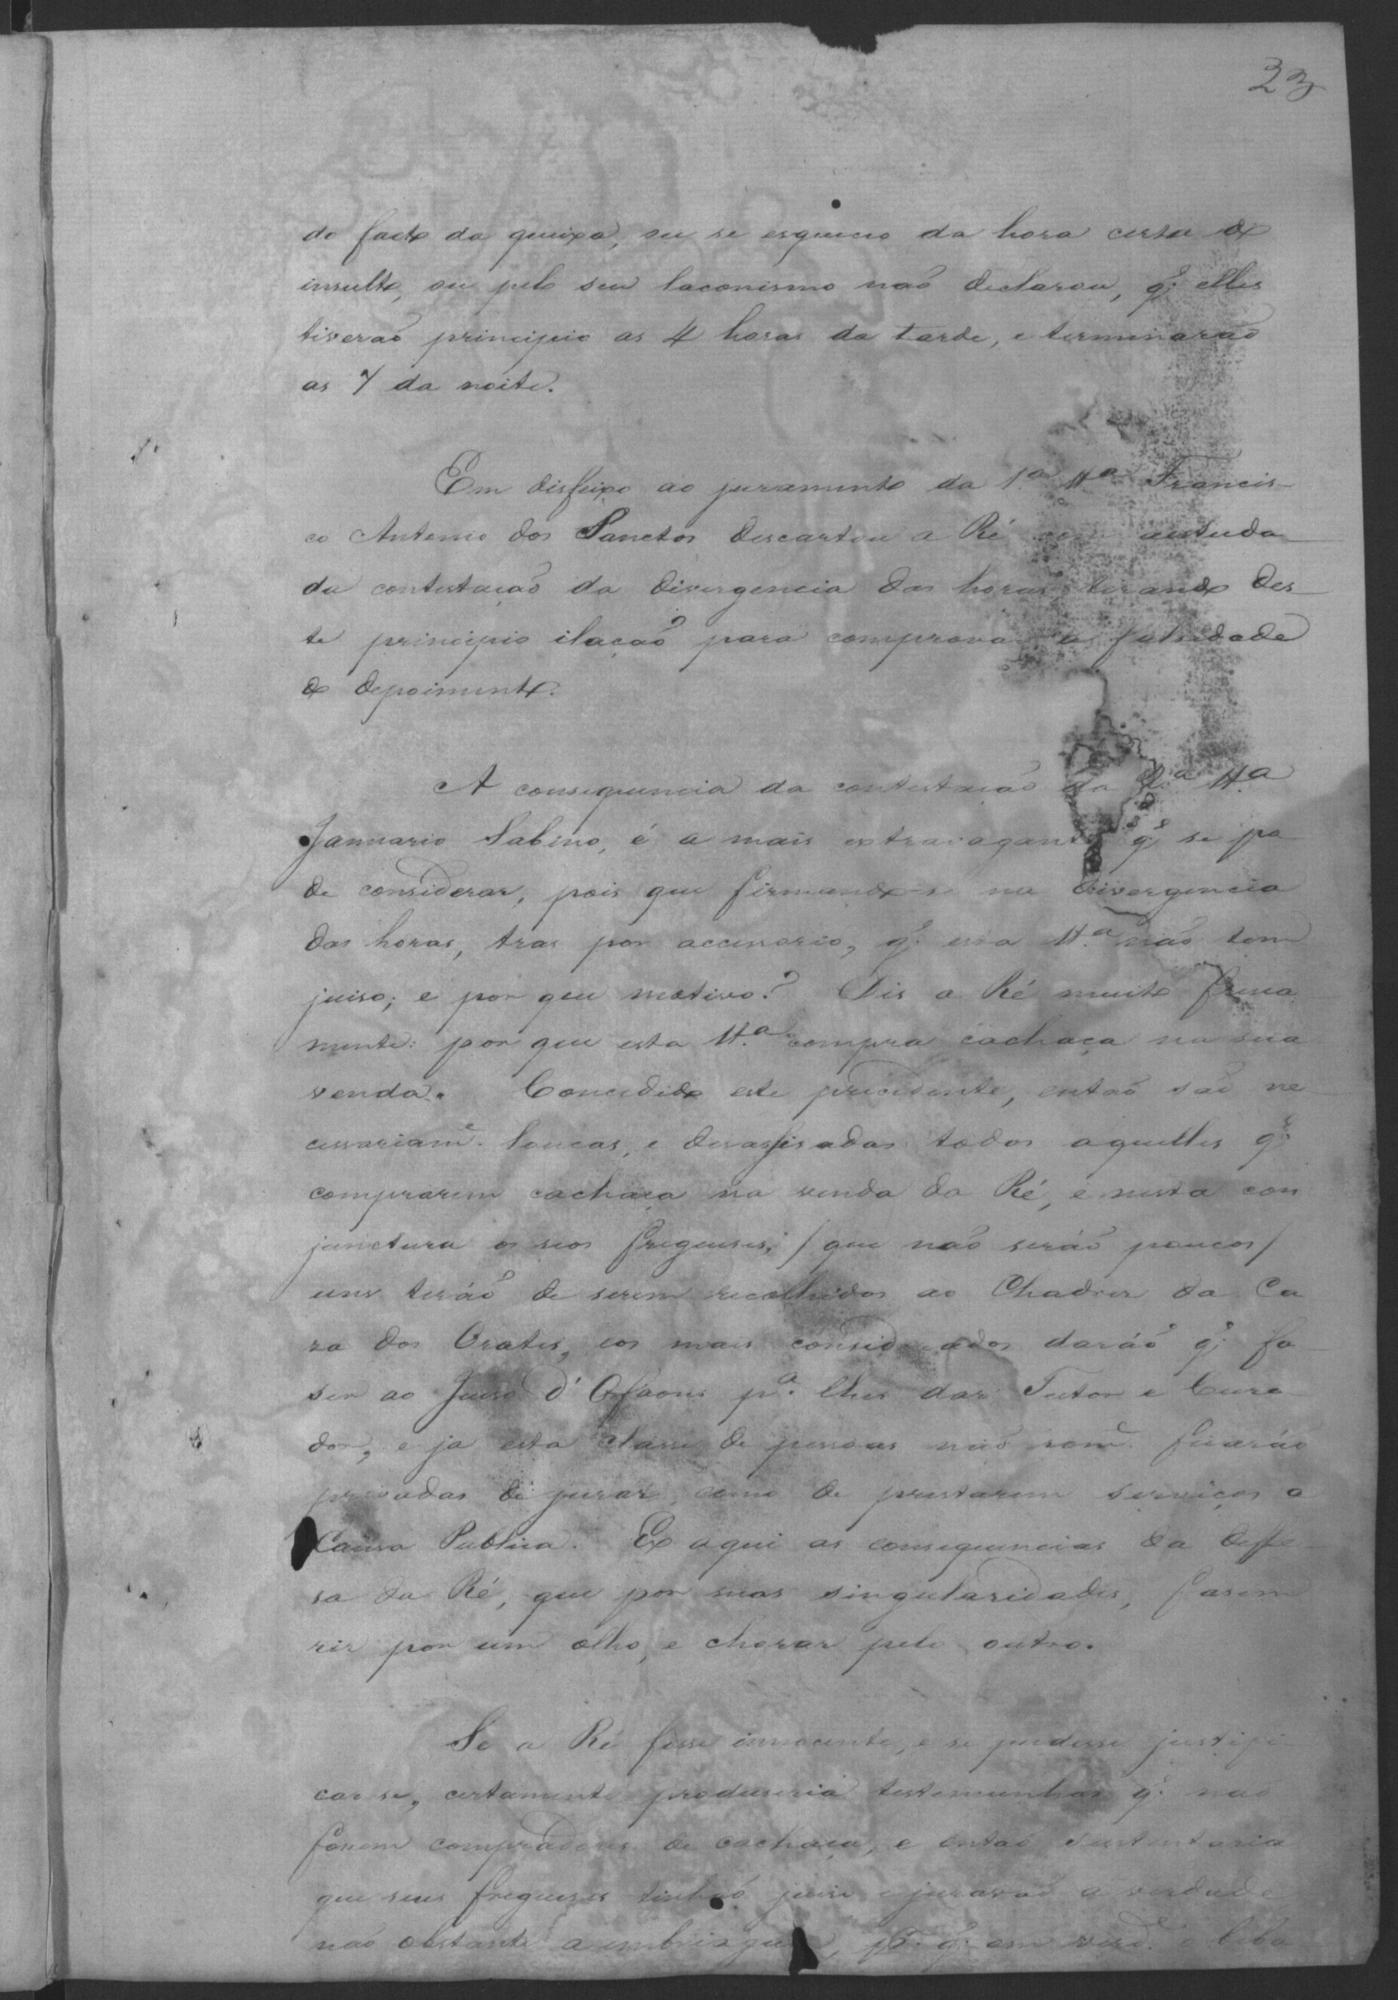 23
do facto da queixa, ou se esqueceo da hora certa do
insulto, ou pelo seu laconismo naõ declarou, q̃. elles
tiveraõ principio as 4 horas da tarde, e terminaraõ
as 7 da noite.
Em disfeixo ao juramento da 1.ª tt.ª Francis-
co Antonio dos Sanctos descartou a Ré com
da contestaçaõ da divergencia das horas, tirando des-
te principio ilaçaõ para comprovar a falsidade
do depoimento.
A consequencia da contestaçaõ da 2.ª tt.ª
Januario Sabino, é a mais extravagante q̃ se po-
de considerar, pois que firmando-se na divergencia
das horas, tras por accessorio, q̃. essa tt.ª não tem
juiso; e por que motivo? Dis a Ré muito fresca
mente: por que esta tt.ª compra cachaça na sua
venda. Concedido este precedente, entaõ saõ ne
cessariam.e loucos, e desassisados todos aquelles q̃.
comprarem cachaça na venda da Ré, e nesta con
junctura os seos fregueses, / que não serão poucos /
uns teráõ de serem recolhidos ao Chadrer da Ca
sa dos Orates, e os mais considerados daráõ q̃. fa-
ser ao Juiso d'Orfaons p.ª lhes dar Tutor e Cura-
dor, e ja esta classe de pessoas não som.e ficarão
privadas de jurar, como de prestarem serviços a
Causa Publica. Ex aqui as consequencias da deffe-
sa da Ré, que por suas singularidades, fasem
rir por um olho, e chorar pelo outro.
Se a Ré fosse innocente, e se pudesse justifi-
car se, certamente produseria testemunhas q̃. naõ
fossem compradores de cachaça, e entaõ sustentaria
que seus freguezes tinhaõ juiso e juravaõ a verdade
não obstante a embriaguez, q̃. em verd.e o beba